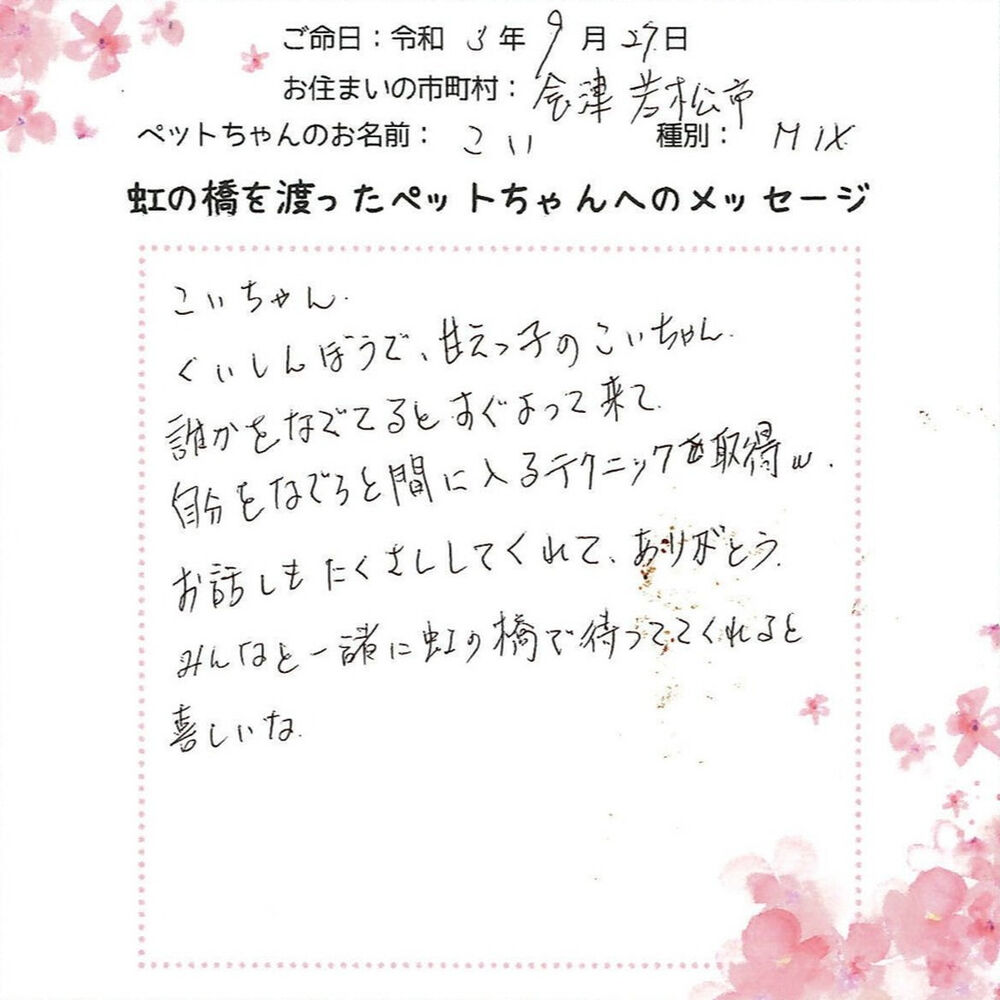 ご命日：令和 3 年 9 月 27 日
お住まいの市町村： 会津若松市
ペットちゃんのお名前： こい 種別： MIX
虹の橋を渡ったペットちゃんへのメッセージ
こいちゃん.
くいしんぼうで、甘えっ子のこいちゃん.
誰かをなでてるとすぐよって来て.
自分をなでろと間に入るテクニックを取得w.
お話しもたくさんしてくれて、ありがとう.
みんなと一諸に虹の橋で待っててくれると
喜しいな.